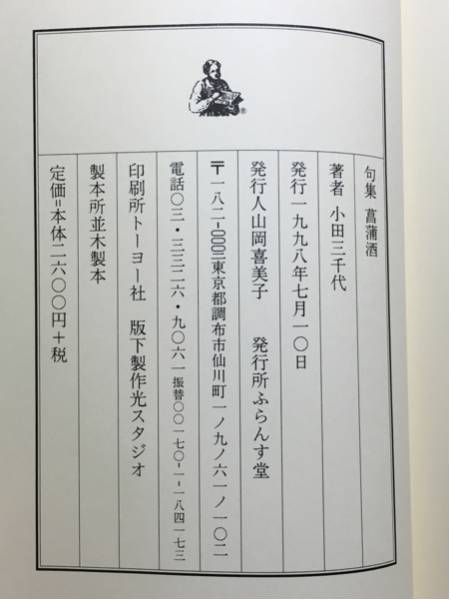 句集 菖蒲酒
著者 小田三千代
発行一九九八年七月一〇日
発行人山岡喜美子 発行所ふらんす堂
〒一八二-〇〇〇二東京都調布市仙川町一ノ九ノ六一ノ一〇二
電話〇三・三三二六・九〇六一振替〇〇一七〇-一-一八四一七三
印刷所トーヨー社 版下製作光スタジオ
製本所並木製本
定価=本体二六〇〇円+税
®